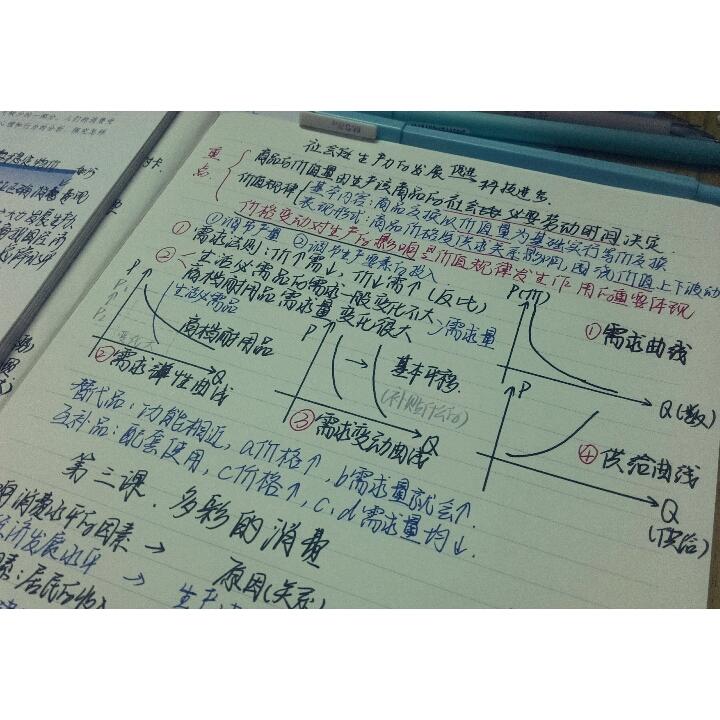 社会生产力的发展 促进 科技进步.
重点
商品的价值量由生产该商品的社会必要劳动时间决定.
价值规律 基本内容:商品交换以价值量为基础实行等价交换
表现形式:商品价格受供求关系影响,围绕价值上下波动
价格变动对生产的影响是价值规律发生作用的重要体现
①调节产量 ②调节生产要素的投入
① 需求法则:价↑需↓,价↓需↑(反比)
② 生活必需品的需求一般变化不大
高档耐用品需求量变化很大
>需求量
P
P₁
P₂
生活必需品
高档耐用品
Q
②需求弹性曲线
P
基本平移.
Q
③需求变动曲线
P(价)
①需求曲线
Q(数)
P
④供给曲线
Q
(供给)
替代品:功能相近,a价格↑,b需求量就会↑.
互补品:配套使用,c价格↑,c,d需求量均↓.
第三课.多彩的消费
消费水平的因素 → 原因(关系)
经济发展水平 → 生产
:居民的收入